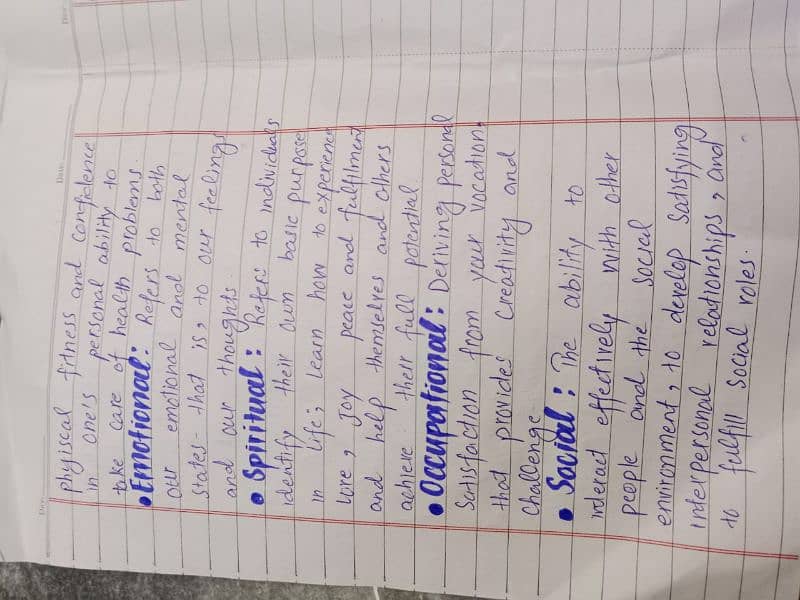 phyiscal fitness and confidence
in one's personal ability to
take care of health problems.
• Emotional: Refers to both
our emotional and mental
states- that is, to our feelings
and our thoughts.
• Spiritual: Refers to individuals
identify their own basic purpose
in life; learn how to experience
love, joy peace and fulfilment
and help themselves and others
achieve their full potential.
• Occupational: Deriving personal
Satisfaction from your vocation
that provides creativity and
challenge.
• Social: The ability to
interact effectively with other
people and the social
environment, to develop satisfying
interpersonal relationships, and
to fulfill social roles.